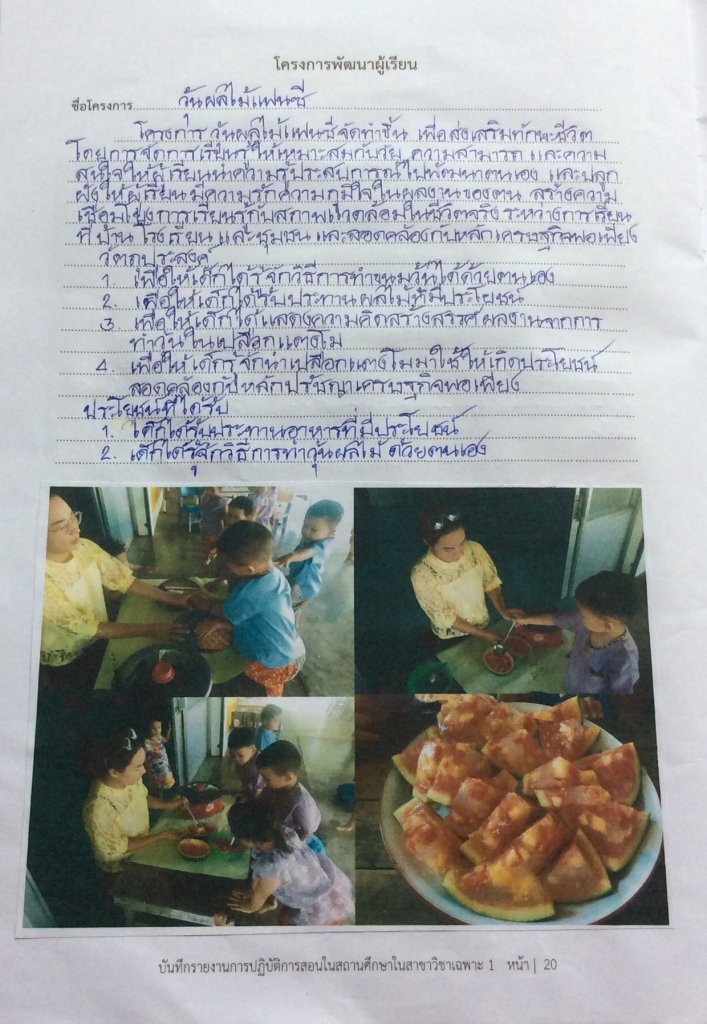 โครงการพัฒนาผู้เรียน
ชื่อโครงการ วุ้นผลไม้แฟนซี
โครงการ วุ้นผลไม้แฟนซีจัดทำขึ้น เพื่อส่งเสริมทักษะชีวิต
โดยการจัดการเรียนรู้ให้เหมาะสมกับวัย ความสามารถ และความ
สนใจให้ผู้เรียนนำความรู้ประสบการณ์ไปพัฒนาตนเอง และปลูก
ฝังให้ผู้เรียนมีความรักความภูมิใจในผลงานของตน สร้างความ
เชื่อมโยงการเรียนรู้กับสภาพแวดล้อมในชีวิตจริง ระหว่างการเรียน
ที่บ้าน โรงเรียน และชุมชน และสอดคล้องกับหลักเศรษฐกิจพอเพียง
วัตถุประสงค์
1. เพื่อให้เด็กได้รู้จักวิธีการทำขนมวุ้นได้ด้วยตนเอง
2. เพื่อให้เด็กได้รับประทานผลไม้ที่มีประโยชน์
3. เพื่อให้เด็กได้แสดงความคิดสร้างสรรค์ผลงานจากการ
ทำวุ้นในเปลือกแตงโม
4. เพื่อให้เด็กรู้จักนำเปลือกแตงโมมาใช้ให้เกิดประโยชน์
สอดคล้องกับหลักปรัชญาเศรษฐกิจพอเพียง
ประโยชน์ที่ได้รับ
1. เด็กได้รับประทานอาหารที่มีประโยชน์
2. เด็กได้รู้จักวิธีการทำวุ้นผลไม้ ด้วยตนเอง
บันทึกรายงานการปฏิบัติการสอนในสถานศึกษาในสาขาวิชาเฉพาะ 1 หน้า | 20